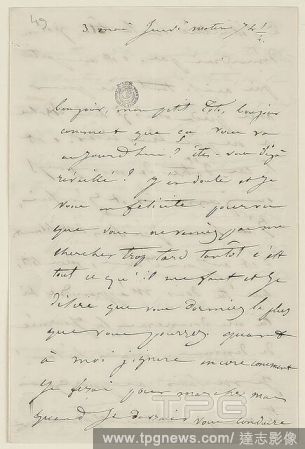 49
3 mai Jeudi matin 7h ½
bonjour, mon petit Toto, bonjour
comment que ça vous va
aujourd'hui ? êtes-vous déjà
réveillé ? J'en doute et je
vous en félicite pourvu
que vous ne veniez pas me
chercher trop tard tantôt c'est
tout ce qu'il me faut et je
désire que vous dormiez le plus
que vous pourrez quant
à moi j'ignore encore comment
je ferai pour marcher mais
quand je devrais vous conduire
TPG
www.tpgnews.com/達志影像